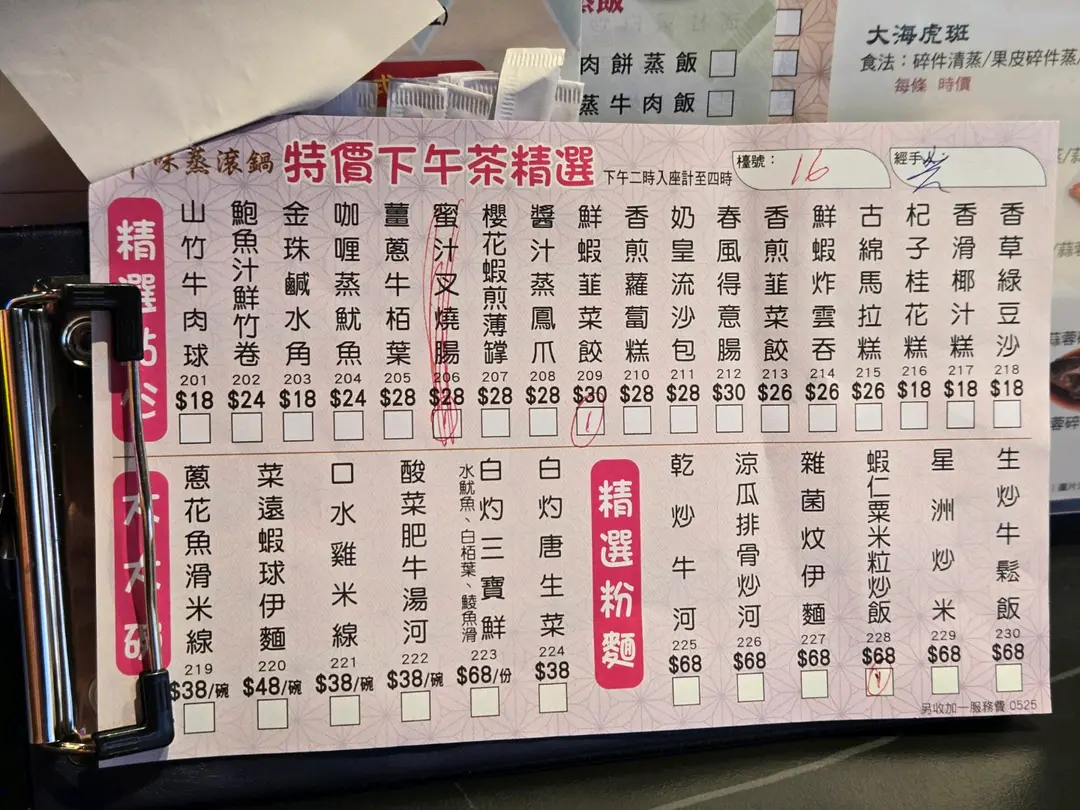 蒸飯
肉餅蒸飯
蒸牛肉飯
大海虎斑
食法：碎件清蒸/果皮碎件蒸/
每條 時價
味蒸滾鍋 特價下午茶精選 下午二時入座計至四時
檯號： 16
經手
精選點心
山竹牛肉球 201 $18
鮑魚汁鮮竹卷 202 $24
金珠鹹水角 203 $18
咖喱蒸魷魚 204 $24
薑蔥牛栢葉 205 $28
蜜汁叉燒腸 206 $28 1
櫻花蝦煎薄罉 207 $28
醬汁蒸鳳爪 208 $28
鮮蝦韮菜餃 209 $30 1
香煎蘿蔔糕 210 $28
奶皇流沙包 211 $28
春風得意腸 212 $30
香煎韮菜餃 213 $26
鮮蝦炸雲吞 214 $26
古綿馬拉糕 215 $26
杞子桂花糕 216 $18
香滑椰汁糕 217 $18
香草綠豆沙 218 $18
大大碗
蔥花魚滑米線 219 $38/碗
菜遠蝦球伊麵 220 $48/碗
口水雞米線 221 $38/碗
酸菜肥牛湯河 222 $38/碗
白灼三寶鮮 水魷魚、白栢葉、鯪魚滑 223 $68/份
白灼唐生菜 224 $38
精選粉麵
乾炒牛河 225 $68
涼瓜排骨炒河 226 $68
雜菌炆伊麵 227 $68
蝦仁粟米粒炒飯 228 $68 1
星洲炒米 229 $68
生炒牛鬆飯 230 $68
另收加一服務費 0525